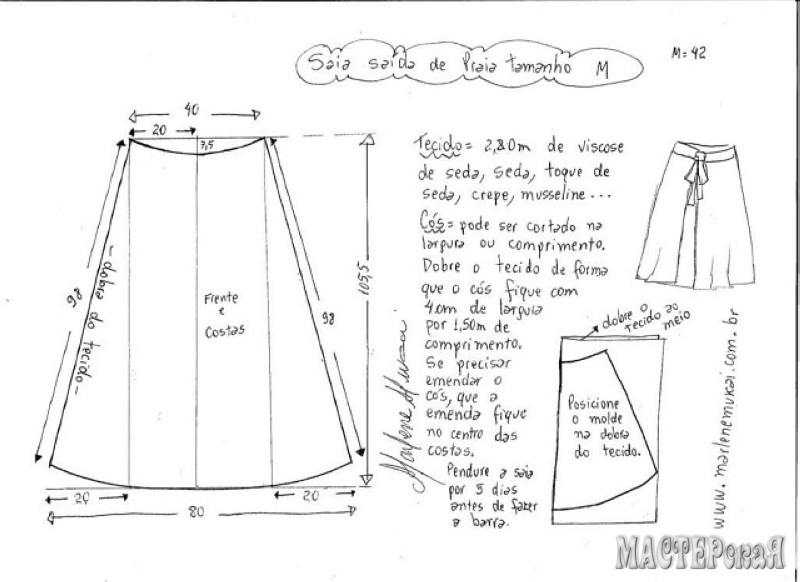 Saia saída de Praia tamanho M
M=42
40
20
7,5
98
-dobra do tecido-
Frente
e
Costas
98
105,5
20
20
80
Tecido= 2,80m de viscose
de seda, seda, toque de
seda, crepe, musseline...
Cós= pode ser cortado na
largura ou comprimento.
Dobre o tecido de forma
que o cós fique com
4cm de largura
por 1,50m de
comprimento.
Se precisar
emendar o
cós, que a
emenda fique
no centro das
costas.
Pendure a saia
por 5 dias
antes de fazer
a barra.
Marlene Mukai
dobre o
tecido ao
meio
Posicione
o molde
na dobra
do tecido.
www.marlenemukai.com.br
МАСТЕРскаЯ